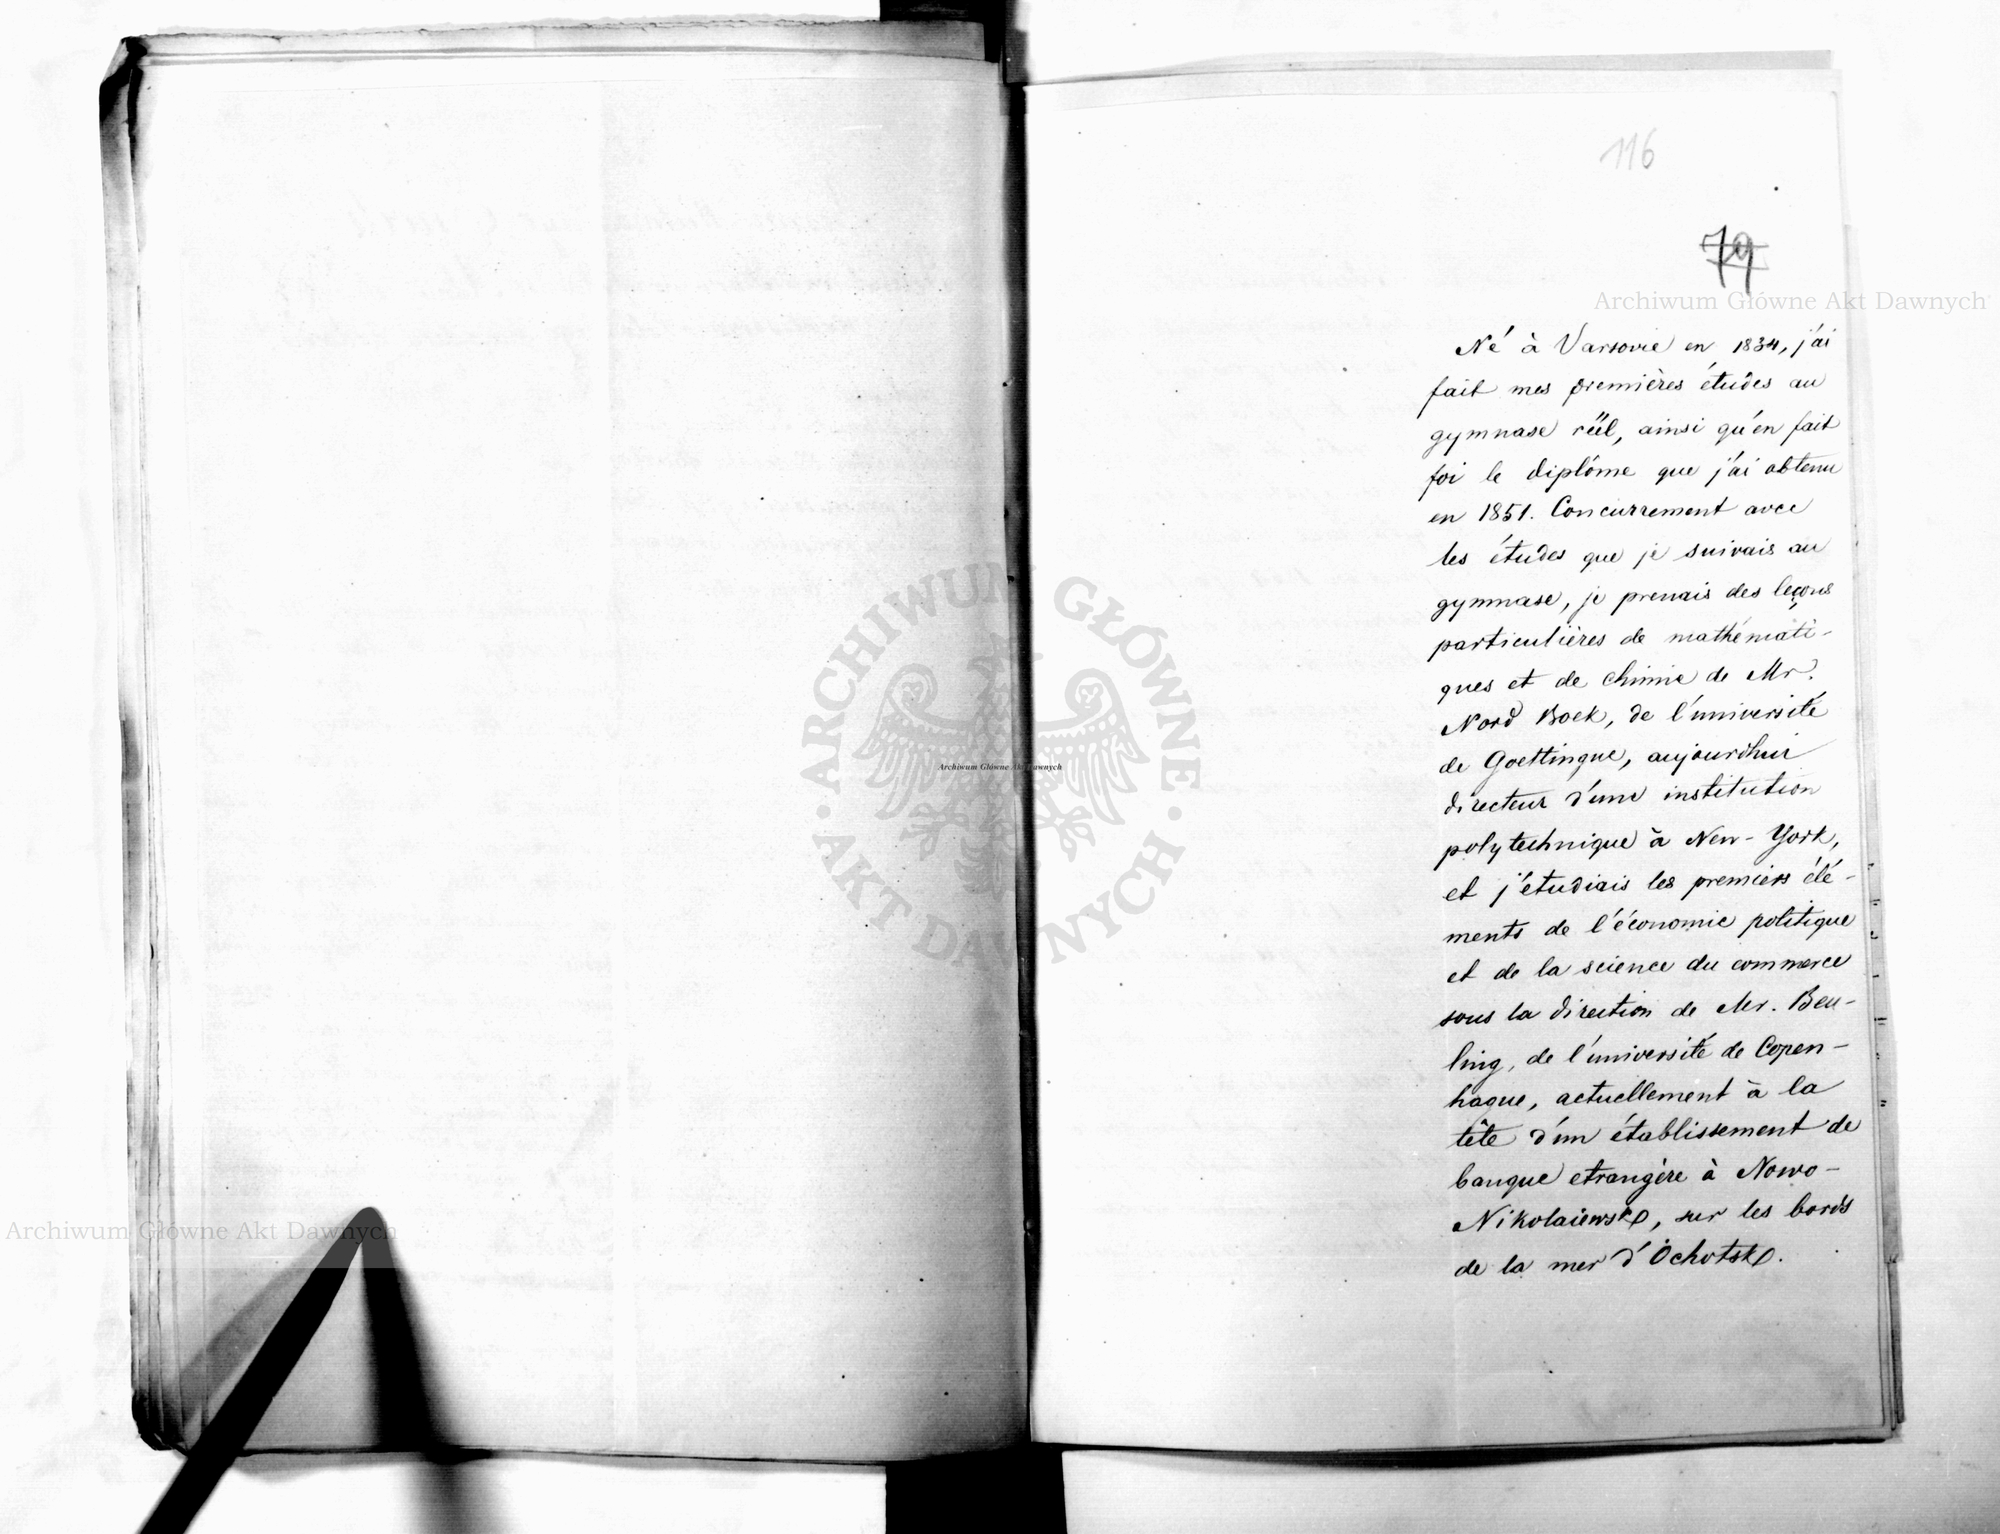 116
79
Archiwum Główne Akt Dawnych
Né à Varsovie en 1834, j'ai
fait mes premières études au
gymnase réël, ainsi qu'en fait
foi le diplôme que j'ai obtenu
en 1851. Concurrement avec
les études que je suivais au
gymnase, je prenais des leçons
particulières de mathémati-
ques et de chimie de Mr.
Nord Boek, de l'université
de Goettingue, aujourdhui
directeur d'une institution
polytechnique à New-York,
et j'etudiais les premiers élé-
ments de l'économie politique
et de la science du commerce
sous la direction de Mr. Beu-
ling, de l'université de Copen-
hague, actuellement à la
tête d'un établissement de
banque etrangère à Nowo-
Nikolaiewsk, sur les bords
de la mer d'Ochotsk.
ARCHIWUM GŁÓWNE
AKT DAWNYCH
Archiwum Główne Akt Dawnych
Archiwum Główne Akt Dawnych